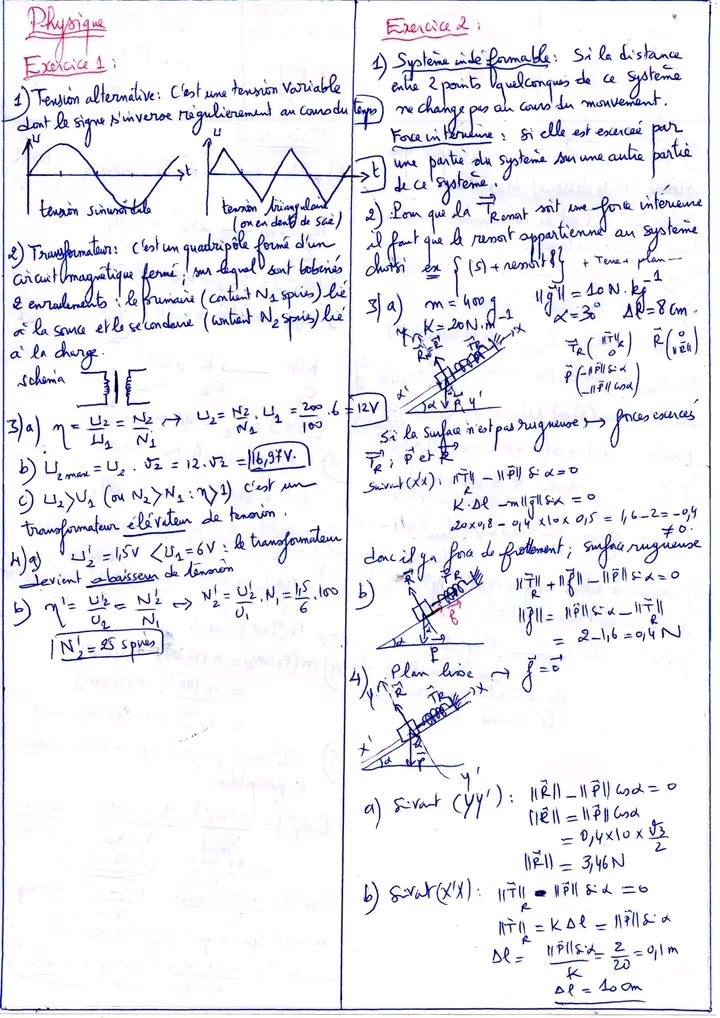 Physique
Exercice 1 :
1) Tension alternative : C'est une tension variable
dont le signe s'inverse régulièrement au cours du temps
u
t
u
t
tension sinusoïdale
tension triangulaire
(ou en dents de scie)
2) Transformateur : C'est un quadripôle formé d'un
circuit magnétique fermé, sur lequel sont bobinés
2 enroulements : le primaire (contient N1 spires) lié
à la source et le secondaire (contient N2 spires) lié
à la charge.
schéma
3) a) η = U2/U1 = N2/N1 ↝ U2 = N2/N1 . U1 = 200/100 . 6 = 12V
b) U2max = U2 . √2 = 12.√2 = 16,97V.
c) U2 > U1 (ou N2 > N1 : η > 1) c'est un
transformateur élévateur de tension.
4) a) U'2 = 1,5V < U1 = 6V : le transformateur
devient abaisseur de tension
b) η' = U'2/U1 = N'2/N1 ↝ N'2 = U'2/U1 . N1 = 1,5/6 . 100
N'2 = 25 spires
Exercice 2 :
1) Système indéformable : Si la distance
entre 2 points quelconques de ce système
ne change pas au cours du mouvement.
Force intérieure : si elle est exercée par
une partie du système sur une autre partie
de ce système.
2) Pour que la T⃗Ressort soit une force intérieure
il faut que le ressort appartienne au système
choisi ex {(S) + ressort} + Terre + plan
3) a) m = 400g ||g⃗|| = 10 N.kg⁻¹
K = 20 N.m⁻¹ α = 30° Δl = 8 cm.
T⃗R (||T⃗||R 0) R⃗ (0 ||R⃗||)
P⃗ (-||P⃗|| sin α -||P⃗|| cos α)
Si la surface n'est pas rugueuse ↝ forces exercées
T⃗R ; P⃗ et R⃗
Suivant (x'x) : ||T⃗||R - ||P⃗|| sin α = 0
K.Δl - m||g⃗|| sin α = 0
20 x 0,8 - 0,4 x 10 x 0,5 = 1,6 - 2 = -0,4
≠ 0.
donc il y a force de frottement ; surface rugueuse
b) ||T⃗||R + ||f⃗|| - ||P⃗|| sin α = 0
||f⃗|| = ||P⃗|| sin α - ||T⃗||R
= 2 - 1,6 = 0,4 N
4) Plan lisse ↝ f⃗ = 0⃗
a) Suivant (yy') : ||R⃗|| - ||P⃗|| cos α = 0
||R⃗|| = ||P⃗|| cos α
= 0,4 x 10 x √3/2
||R⃗|| = 3,46 N
b) Suivat (x'x) : ||T⃗||R - ||P⃗|| sin α = 0
||T⃗||R = K Δl = ||P⃗|| sin α
Δl = ||P⃗|| sin α/K = 2/20 = 0,1 m
Δl = 10 cm